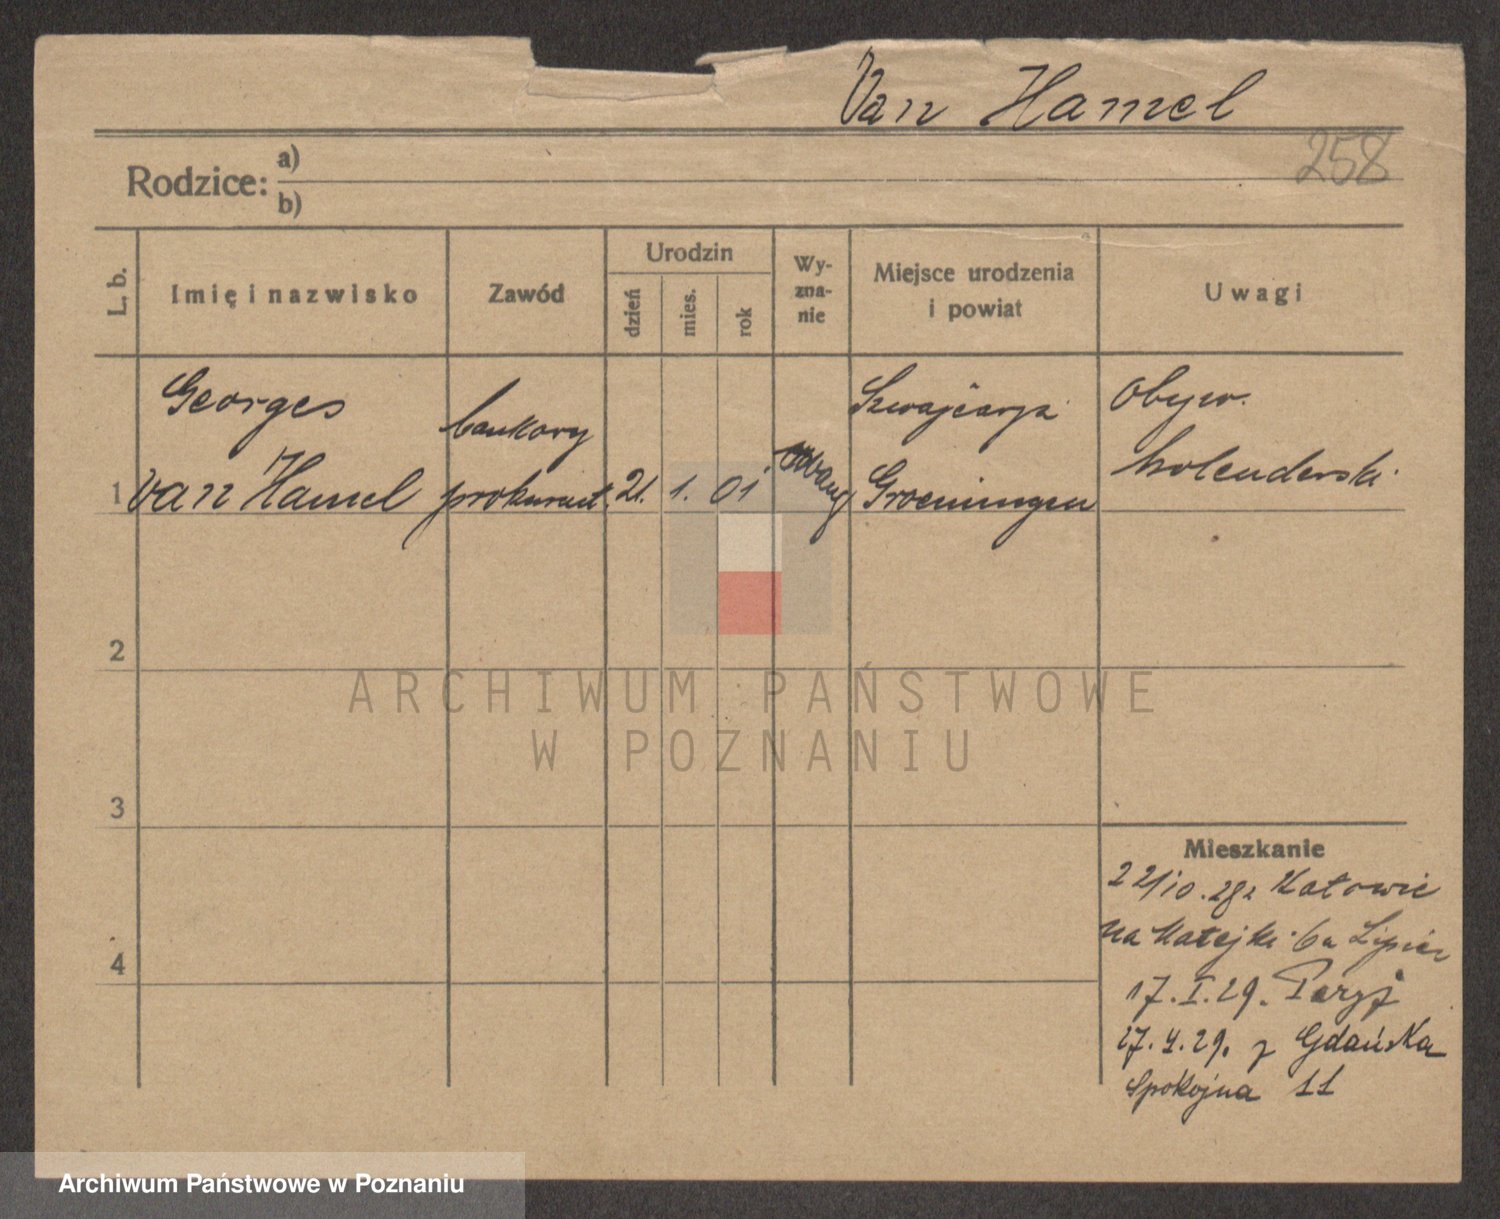 Van Hamel
258
Rodzice: a)
b)
L. b.
Imię i nazwisko
Zawód
Urodzin
dzień
mies.
rok
Wy-
zna-
nie
Miejsce urodzenia
i powiat
Uwagi
1
Georges
van Hamel
bankowy
prokurent.
21. 1. 01
ewang
Szwajcarja
Groeningen
Obyw.
holenderski
2
3
4
Mieszkanie
22/10.28 z Katowic
na Matejki 6a Lipiec
17.I.29. Paryż
27.4.29. z Gdańska
Spokojna 11
ARCHIWUM PAŃSTWOWE
W POZNANIU
Archiwum Państwowe w Poznaniu